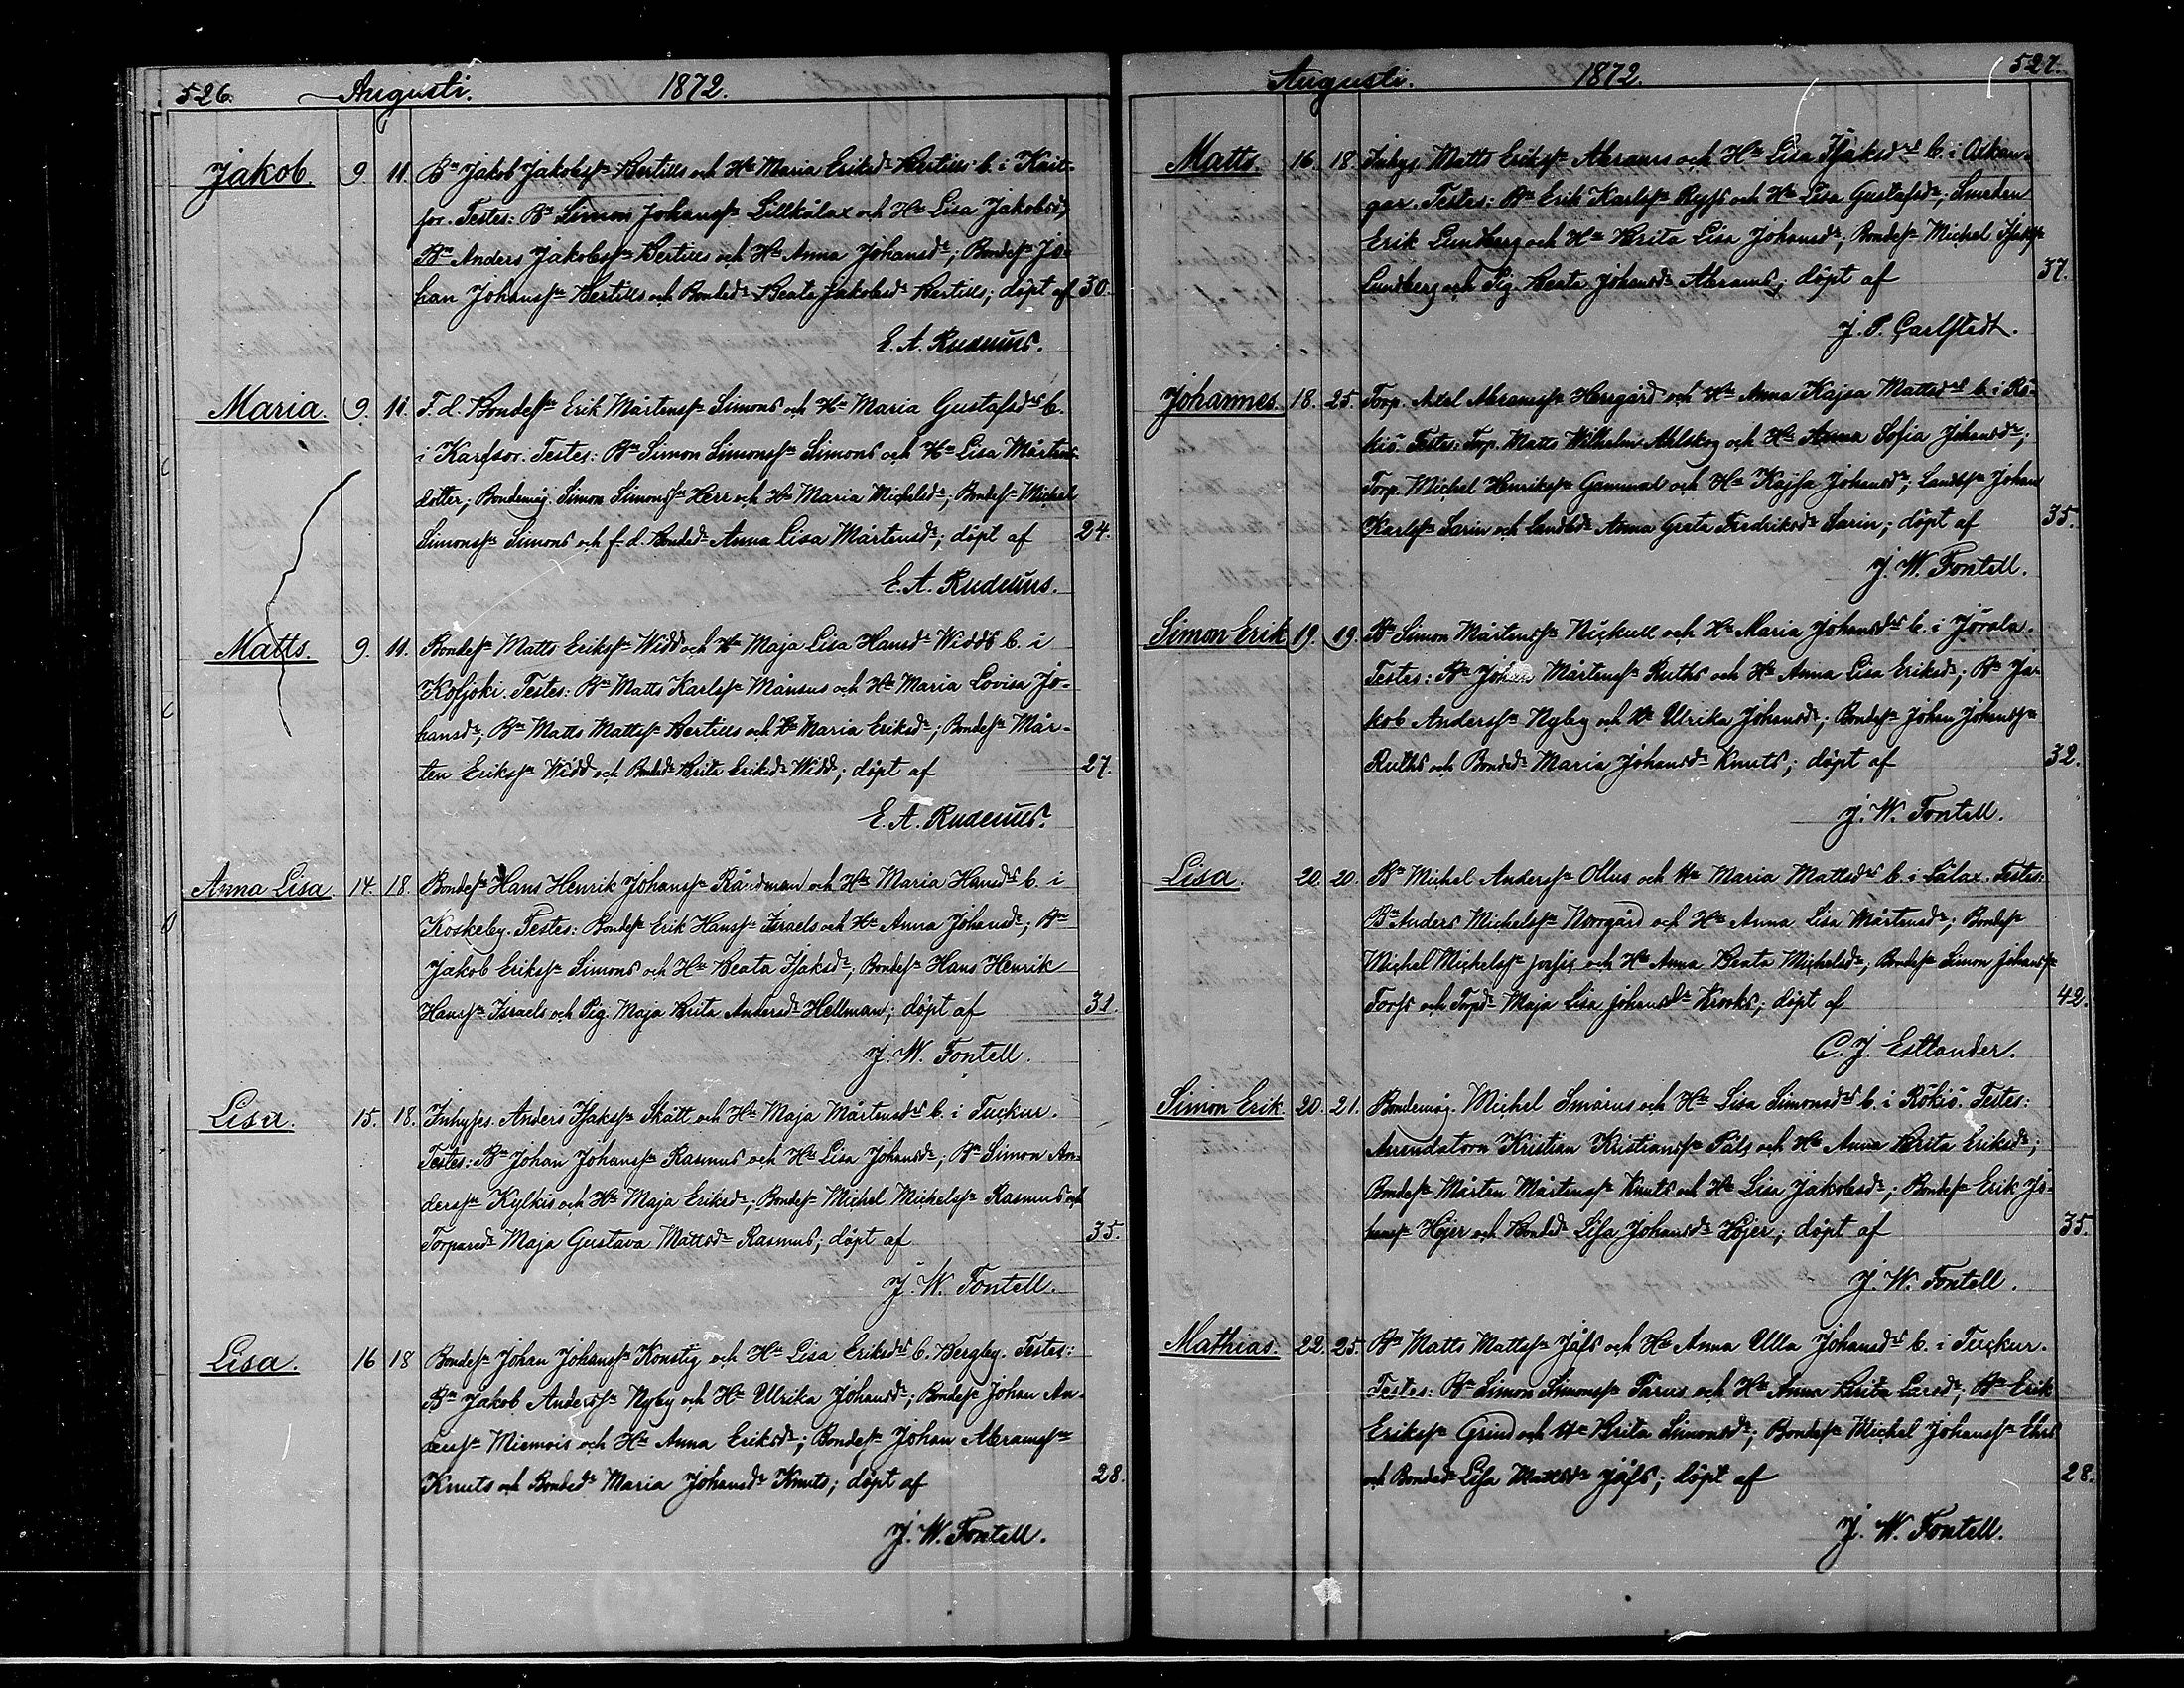 526. Augusti. 1872.
Jakob. 9 11. Bn Jakob Jakobssn Bertills och Hu Maria Eriksdr Bertills b. i Kart-
sor. Testes: Bn Simon Johanssn Lillkålax och Hu Lisa Jakobsdr;
Bn Anders Jakobssn Bertills och Hu Anna Johansdr; Bondesn Jo-
han Johanssn Bertills och Bondedr Beata Jakobsdr Bertills; döpt af 30.
E. A. Rudenius.
Maria. 9. 11. F. d. Bondesn Erik Mårtenssn Simons och Hu Maria Gustafsdr b.
i Karfsor. Testes: Bn Simon Simonssn Simons och Hu Lisa Mårtens-
dotter; Bondemåg. Simon Simonssn Herr och Hu Maria Michelsdr; Bondesn Michel
Simonssn Simons och f. d. Bondedr Anna Lisa Mårtensdr; döpt af 24.
E. A. Rudenius.
Matts. 9. 11. Bondesn Matts Erikssn Widd och Hu Maja Lisa Hansdr Widds b. i
Koljoki. Testes: Bn Matts Karlssn Månsus och Hu Maria Lovisa Jo-
hansdr; Bn Matts Mattssn Bertills och Hu Maria Eriksdr; Bondesn Mår-
ten Erikssn Widd och Bondedr Brita Eriksdr Widd; döpt af 27.
E. A. Rudenius.
Anna Lisa 14. 18. Bondesn Hans Henrik Johanssn Rändman och Hu Maria Hansdr b. i
Koskeby. Testes: Bondesn Erik Hanssn Israels och Hu Anna Johansdr; Bn
Jakob Erikssn Simons och Hu Beata Isaksdr; Bondesn Hans Henrik
Hanssn Israels och Pig. Maja Brita Andersdr Hellman; döpt af 31.
J. W. Fontell.
Lisa. 15. 18. Inhyses. Anders Isakssn Skått och Hu Maja Mårtensdr b. i Tuckur.
Testes: Bn Johan Johanssn Rasmus och Hu Lisa Johansdr; Bn Simon An-
derssn Kylkis och Hu Maja Eriksdr; Bondesn Michel Michelssn Rasmus och
Torparedr Maja Gustava Mattsdr Rasmus; döpt af 35.
J. W. Fontell.
Lisa. 16 18 Bondesn Johan Johanssn Konstig och Hu Lisa Eriksdr b. Bergby. Testes:
Bn Jakob Anderssn Nyby och Hu Ulrika Johansdr; Bondesn Johan An-
derssn Miemois och Hu Anna Eriksdr; Bondesn Johan Abramssn
Knuts och Bondedr Maria Johansdr Knuts; döpt af 28.
J. W. Fontell.
Augusti. 1872. 527.
Matts. 16. 18. Inhys. Matts Erikssn Abrams och Hu Lisa Isaksdr b. i Orkan-
gar. Testes: Bn Erik Karlssn Ryss och Hu Lisa Gustafsdr; Smeden
Erik Lundberg och Hu Brita Lisa Johansdr; Bondesn Michel Isakssn
Lundberg och Pig. Beata Johansdr Abrams; döpt af 37.
J. T. Carlstedt.
Johannes. 18. 25. Torp. Axel Abramssn Herrgård och Hu Anna Kajsa Mattsdr b. i Rö-
kiö. Testes: Torp. Matts Wilhelm Ahlskog och Hu Anna Sofia Johansdr;
Torp. Michel Henrikssn Gammal och Hu Kajsa Johansdr; Landbsn Johan
Karlssn Sarin och Landbdr Anna Greta Fredriksdr Sarin; döpt af 35.
J. W. Fontell.
Simon Erik 19. 19. Bn Simon Mårtenssn Nickull och Hu Maria Johansdr b. i Jörala.
Testes: Bn Johan Mårtenssn Ruths och Hu Anna Lisa Eriksdr; Bn Ja-
kob Anderssn Nyby och Hu Ulrika Johansdr; Bondesn Johan Johanssn
Ruths och Bondedr Maria Johansdr Knuts; döpt af 32.
J. W. Fontell.
Lisa. 20. 20. Bn Michel Anderssn Ollus och Hu Maria Mattsdr b. i Lålax. Testes:
Bn Anders Michelssn Norrgård och Hu Anna Lisa Mårtensdr; Bondesn
Michel Michelssn och Hu Anna Beata Michelsdr; Bondesn Simon Johanssn
Torfs och Torpdr Maja Lisa Johansdr Krooks; döpt af 42.
C. J. Estlander.
Simon Erik 20. 21. Bondemåg. Michel Smårus och Hu Lisa Simonsdr b. i Rökiö. Testes:
Arrendatorn Kristian Kristianssn Påls och Hu Anna Brita Eriksdr;
Bondesn Mårten Mårtenssn Knuts och Hu Lisa Jakobsdr; Bondesn Erik Jo-
hanssn Höjer och Bondedr Lisa Johansdr Höjer; döpt af 35.
J. W. Fontell.
Mathias. 22. 25. Bn Matts Mattssn Jåfs och Hu Anna Ulla Johansdr b. i Tuckur.
Testes: Bn Simon Simonssn Parus och Hu Anna Brita Larsdr; Bn Erik
Erikssn Grind och Hu Brita Simonsdr; Bondesn Michel Johanssn Ehrs
och Bondedr Lisa Mattsdr Jåfs; döpt af 28.
J. W. Fontell.